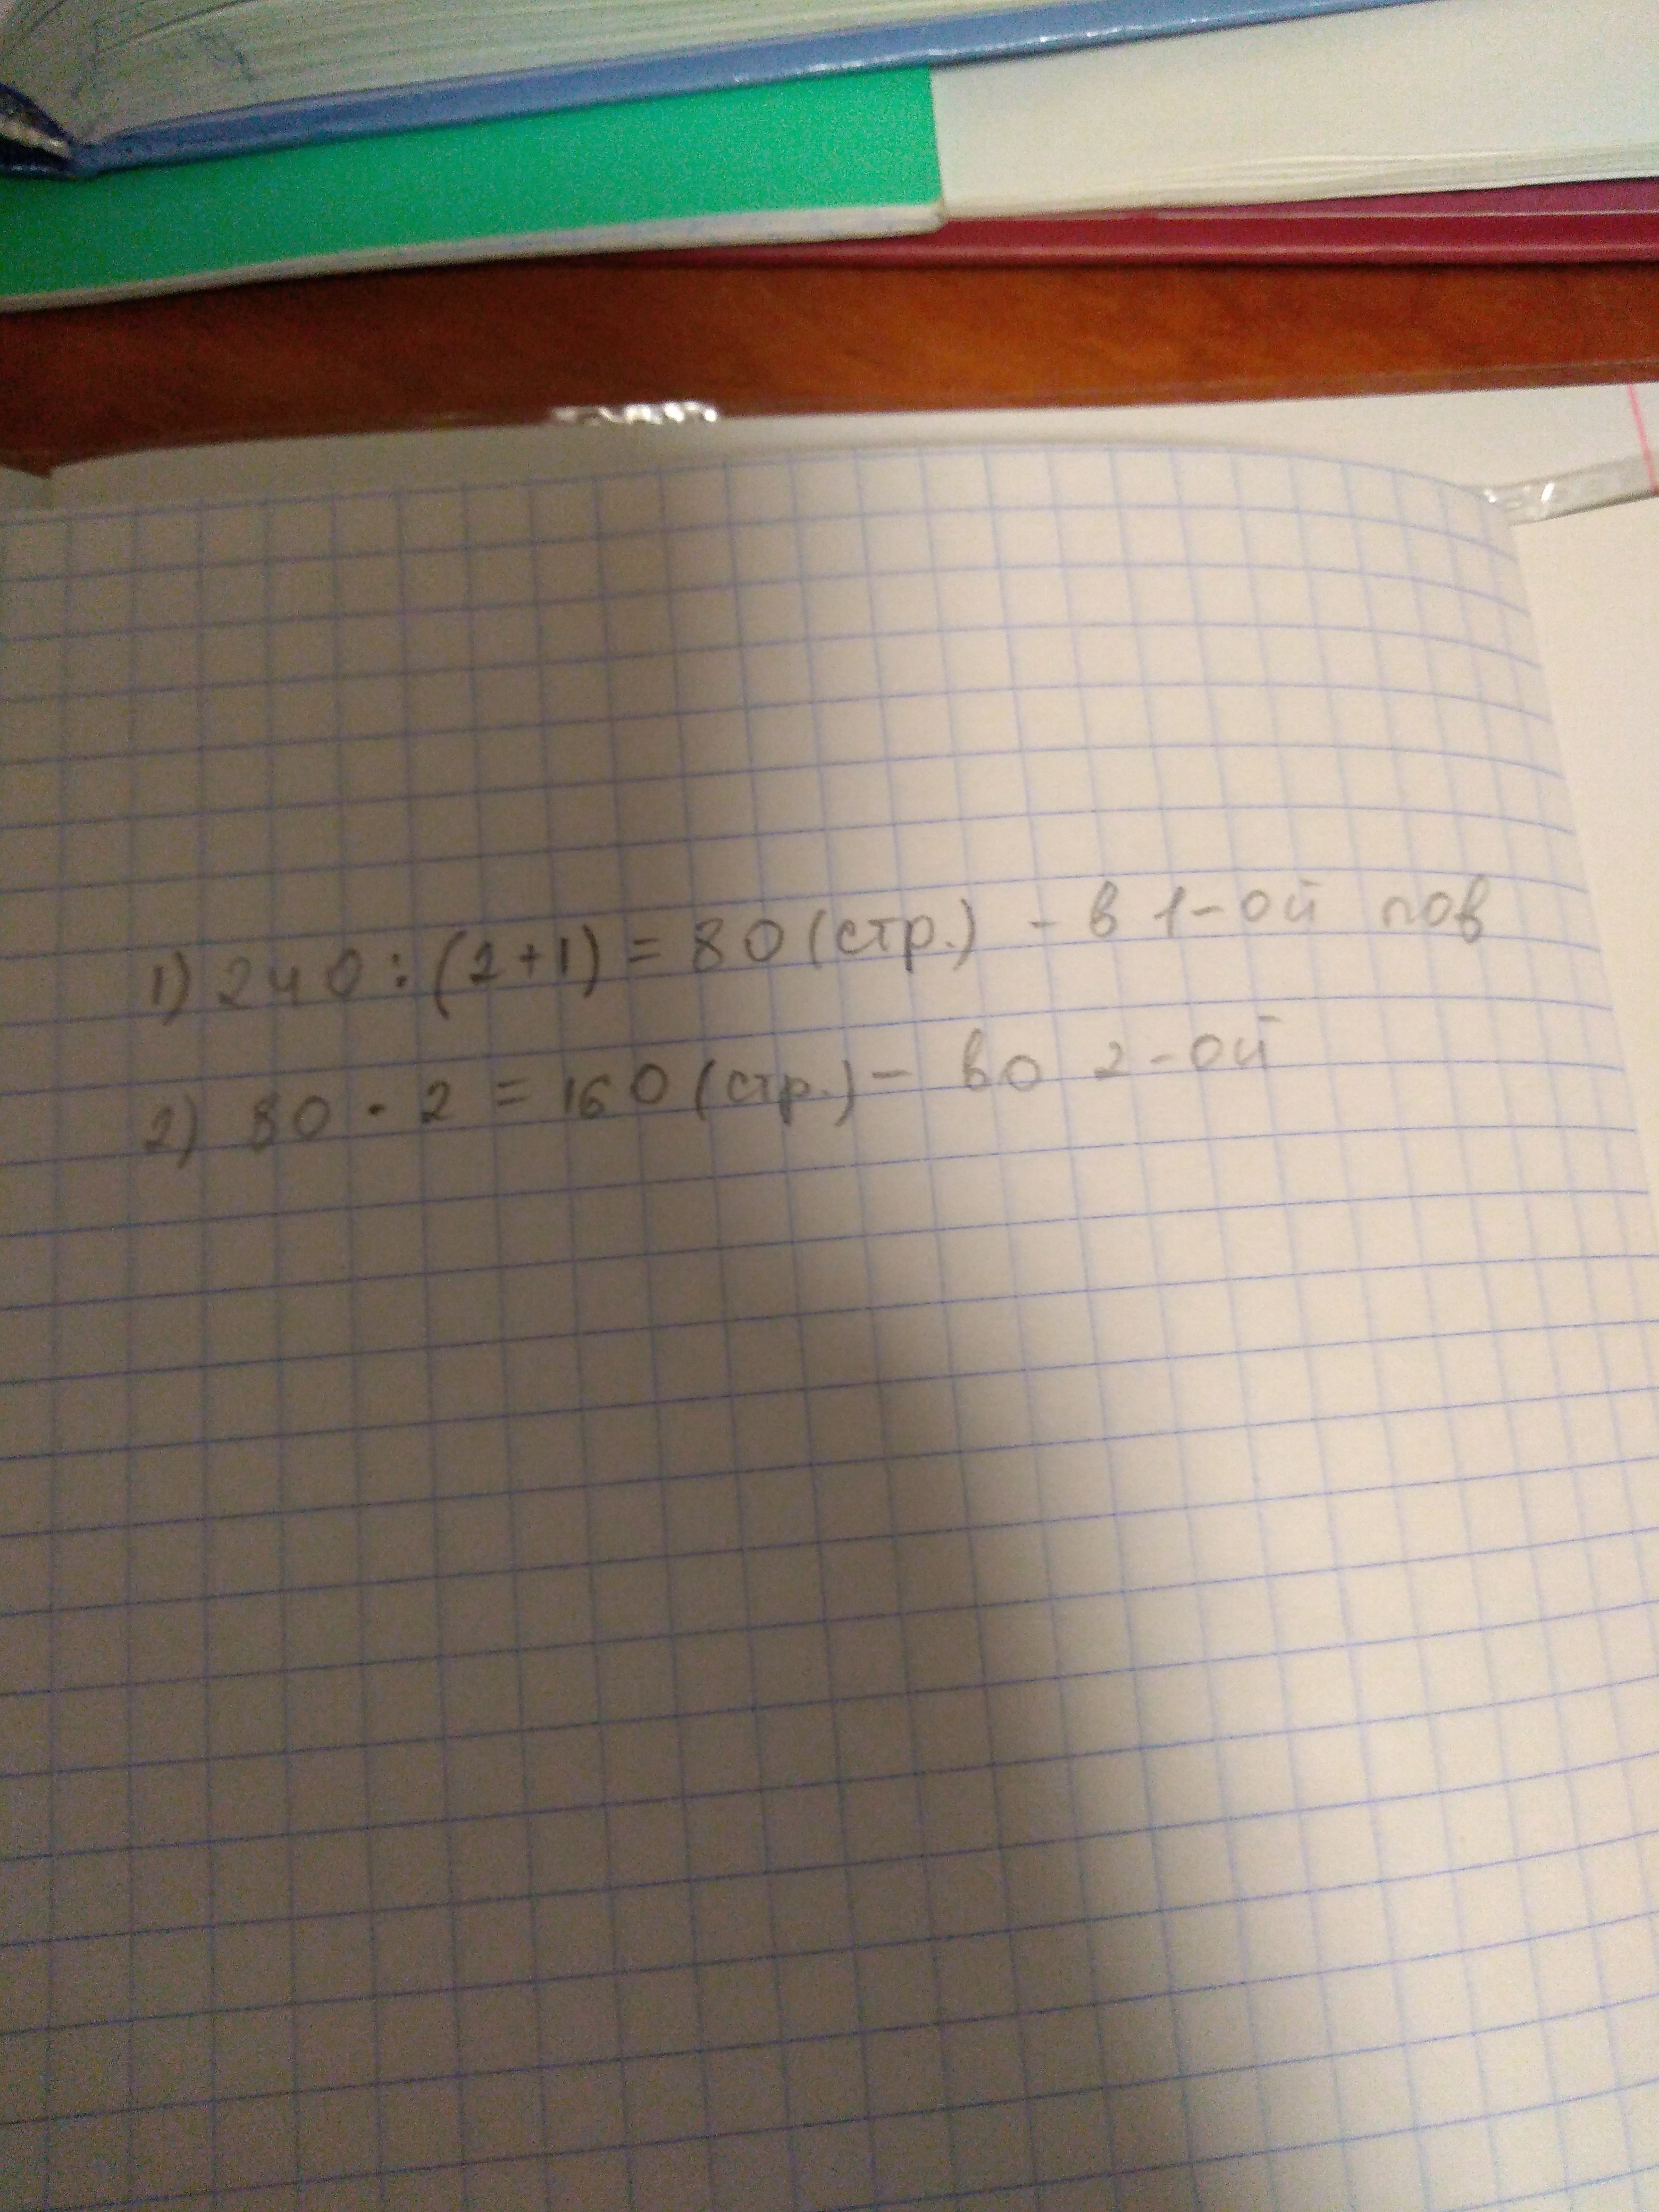 1) 240 : (2+1) = 80 (стр.) - в 1-ой пов
2) 80 · 2 = 160 (стр.) - во 2-ой